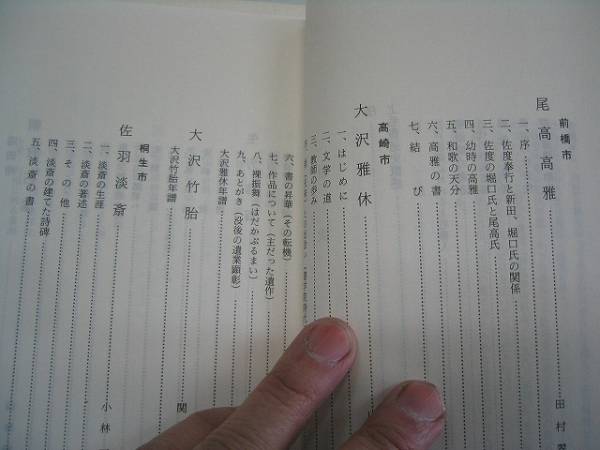 前橋市
尾高高雅
田村
一、序
二、佐度奉行と新田、堀口氏の関係
三、佐度の堀口氏と尾高氏
四、幼時の高雅
五、和歌の天分
六、高雅の書
七、結び
高崎市
大沢雅休
一、はじめに
二、文学の道
三、教師の歩み
六、書の昇華（その転機）
七、作品について（主だった遺作）
八、裸振舞（はだかぶるまい）
九、あとがき（没後の遺業顕彰）
大沢雅休年譜
大沢竹胎
関
大沢竹胎年譜
桐生市
佐羽淡斎
小林
一、淡斎の生涯
二、淡斎の著述
三、その他
四、淡斎の建てた詩碑
五、淡斎の書